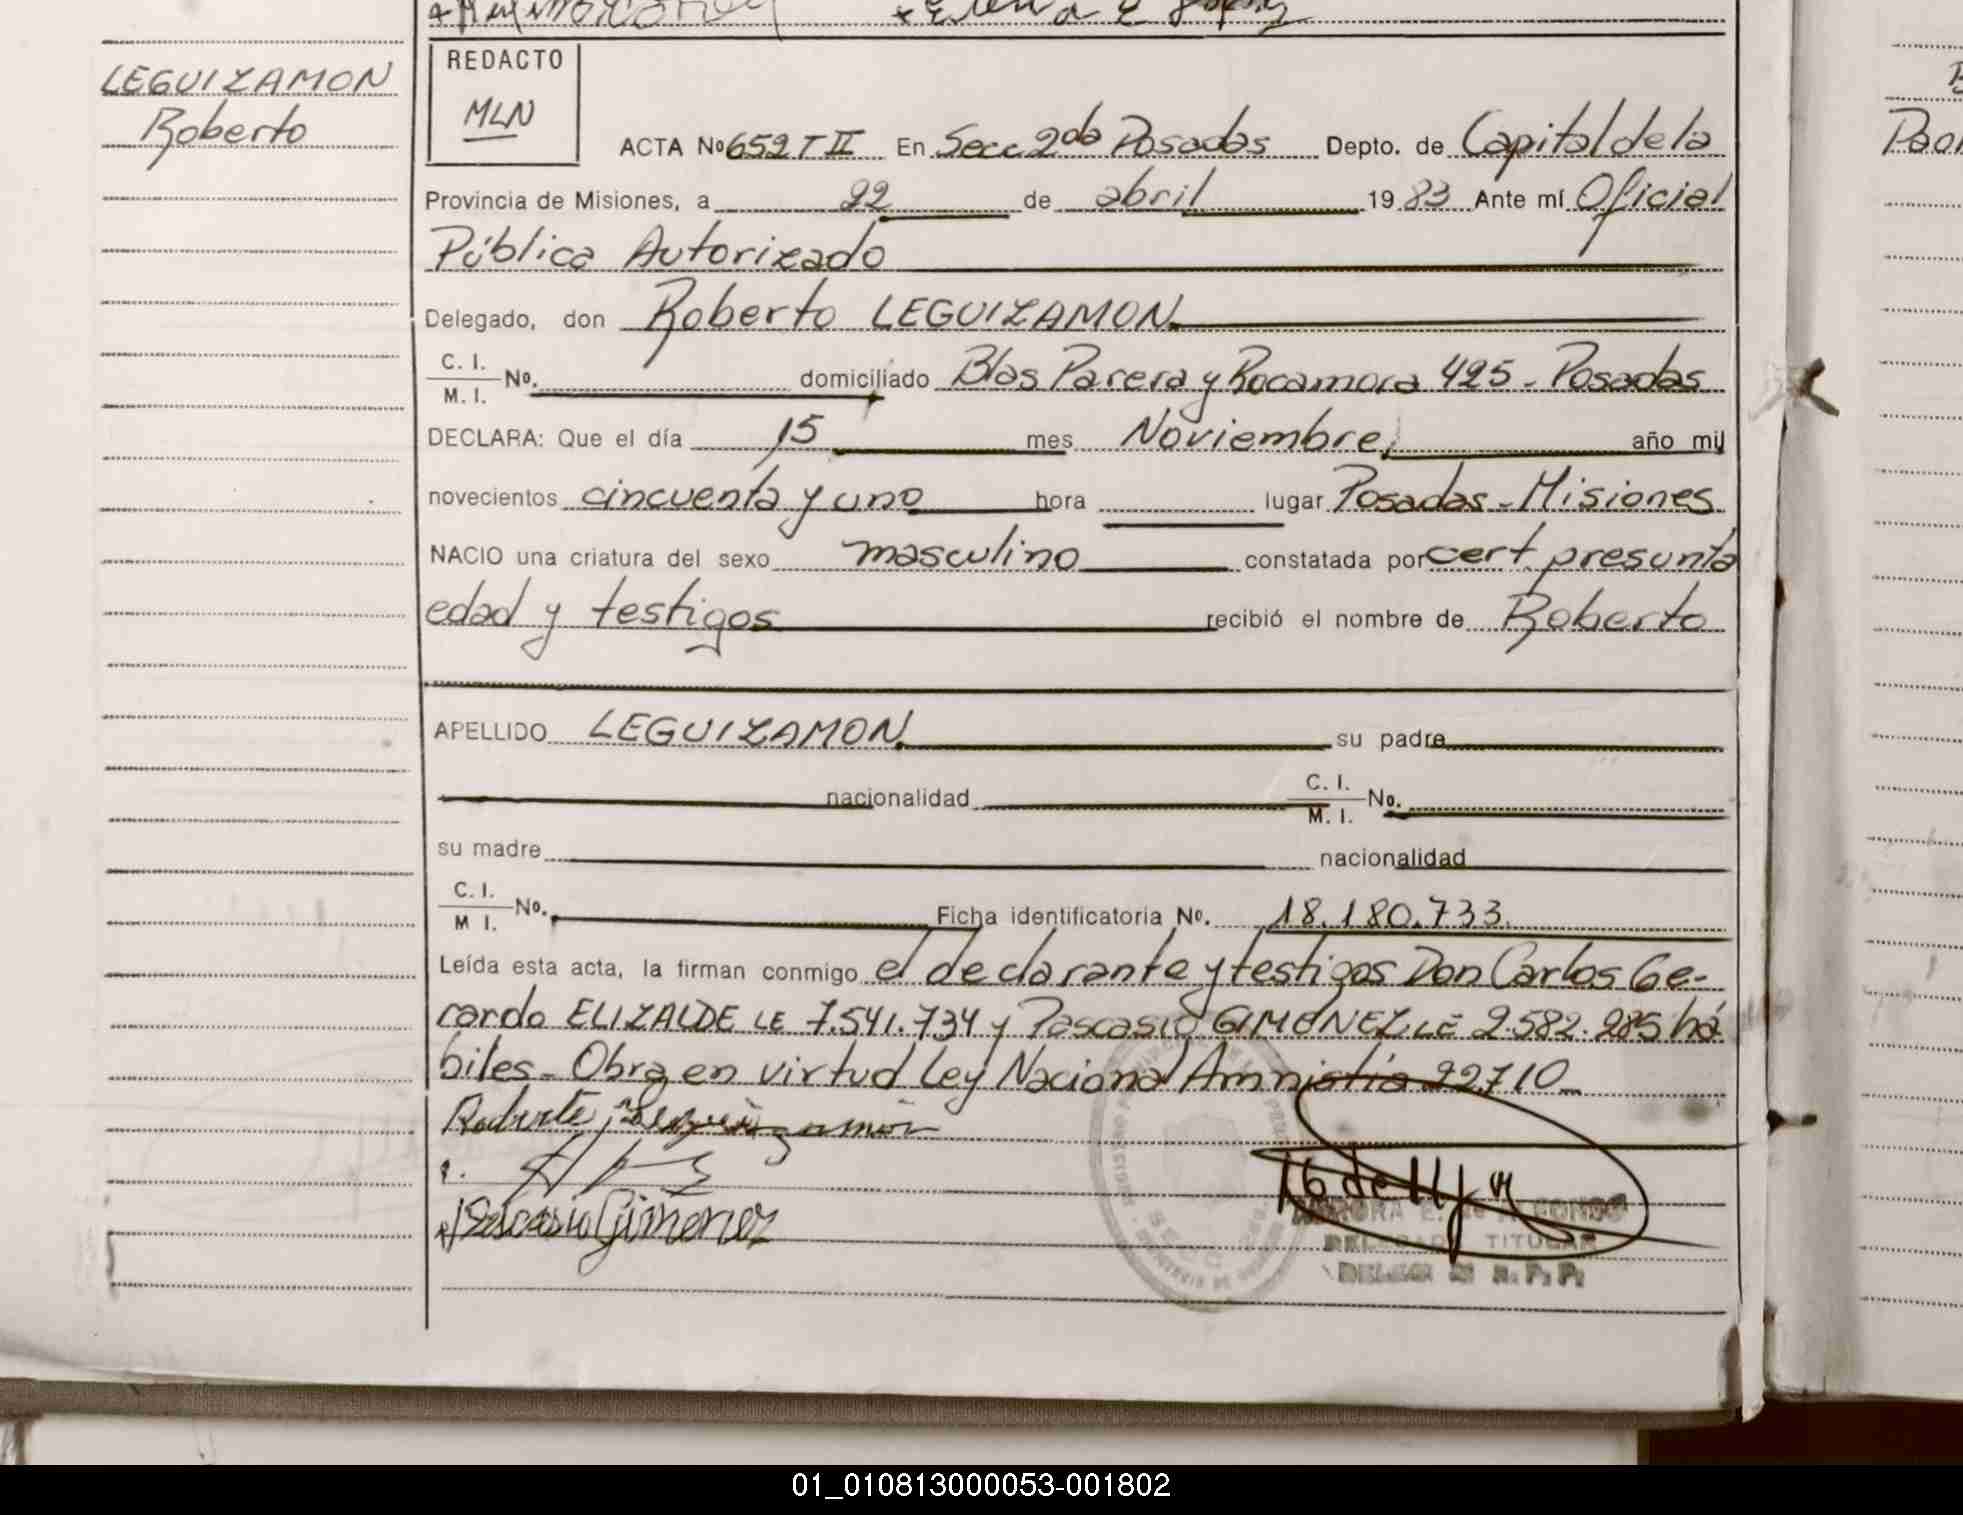 LEGUIZAMON
Roberto
REDACTO
MLN
ACTA Nº 652 T II En Secc 2da Posadas Depto. de Capital de la
Provincia de Misiones, a 22 de abril 1983 Ante mí Oficial
Pública Autorizado
Delegado, don Roberto LEGUIZAMON
C. I.
M. I. Nº. domiciliado Blas Parera y Rocamora 425 - Posadas
DECLARA: Que el día 15 mes Noviembre año mil
novecientos cincuenta y uno hora lugar Posadas - Misiones
NACIO una criatura del sexo masculino constatada por cert. presunta
edad y testigos recibió el nombre de Roberto
APELLIDO LEGUIZAMON su padre
nacionalidad C. I. M. I. Nº.
su madre nacionalidad
C. I.
M I. Nº. Ficha identificatoria Nº. 18.180.733
Leída esta acta, la firman conmigo el declarante y testigos Don Carlos Ge-
rardo ELIZALDE LE 7.541.734 y Pascasio GIMENEZ LE 2.582.285 há
biles - Obra en virtud Ley Nacional Amnistía 22710
Roberto Leguizamon
Pascasio Gimenez
TITULAR
Paol
01_010813000053-001802